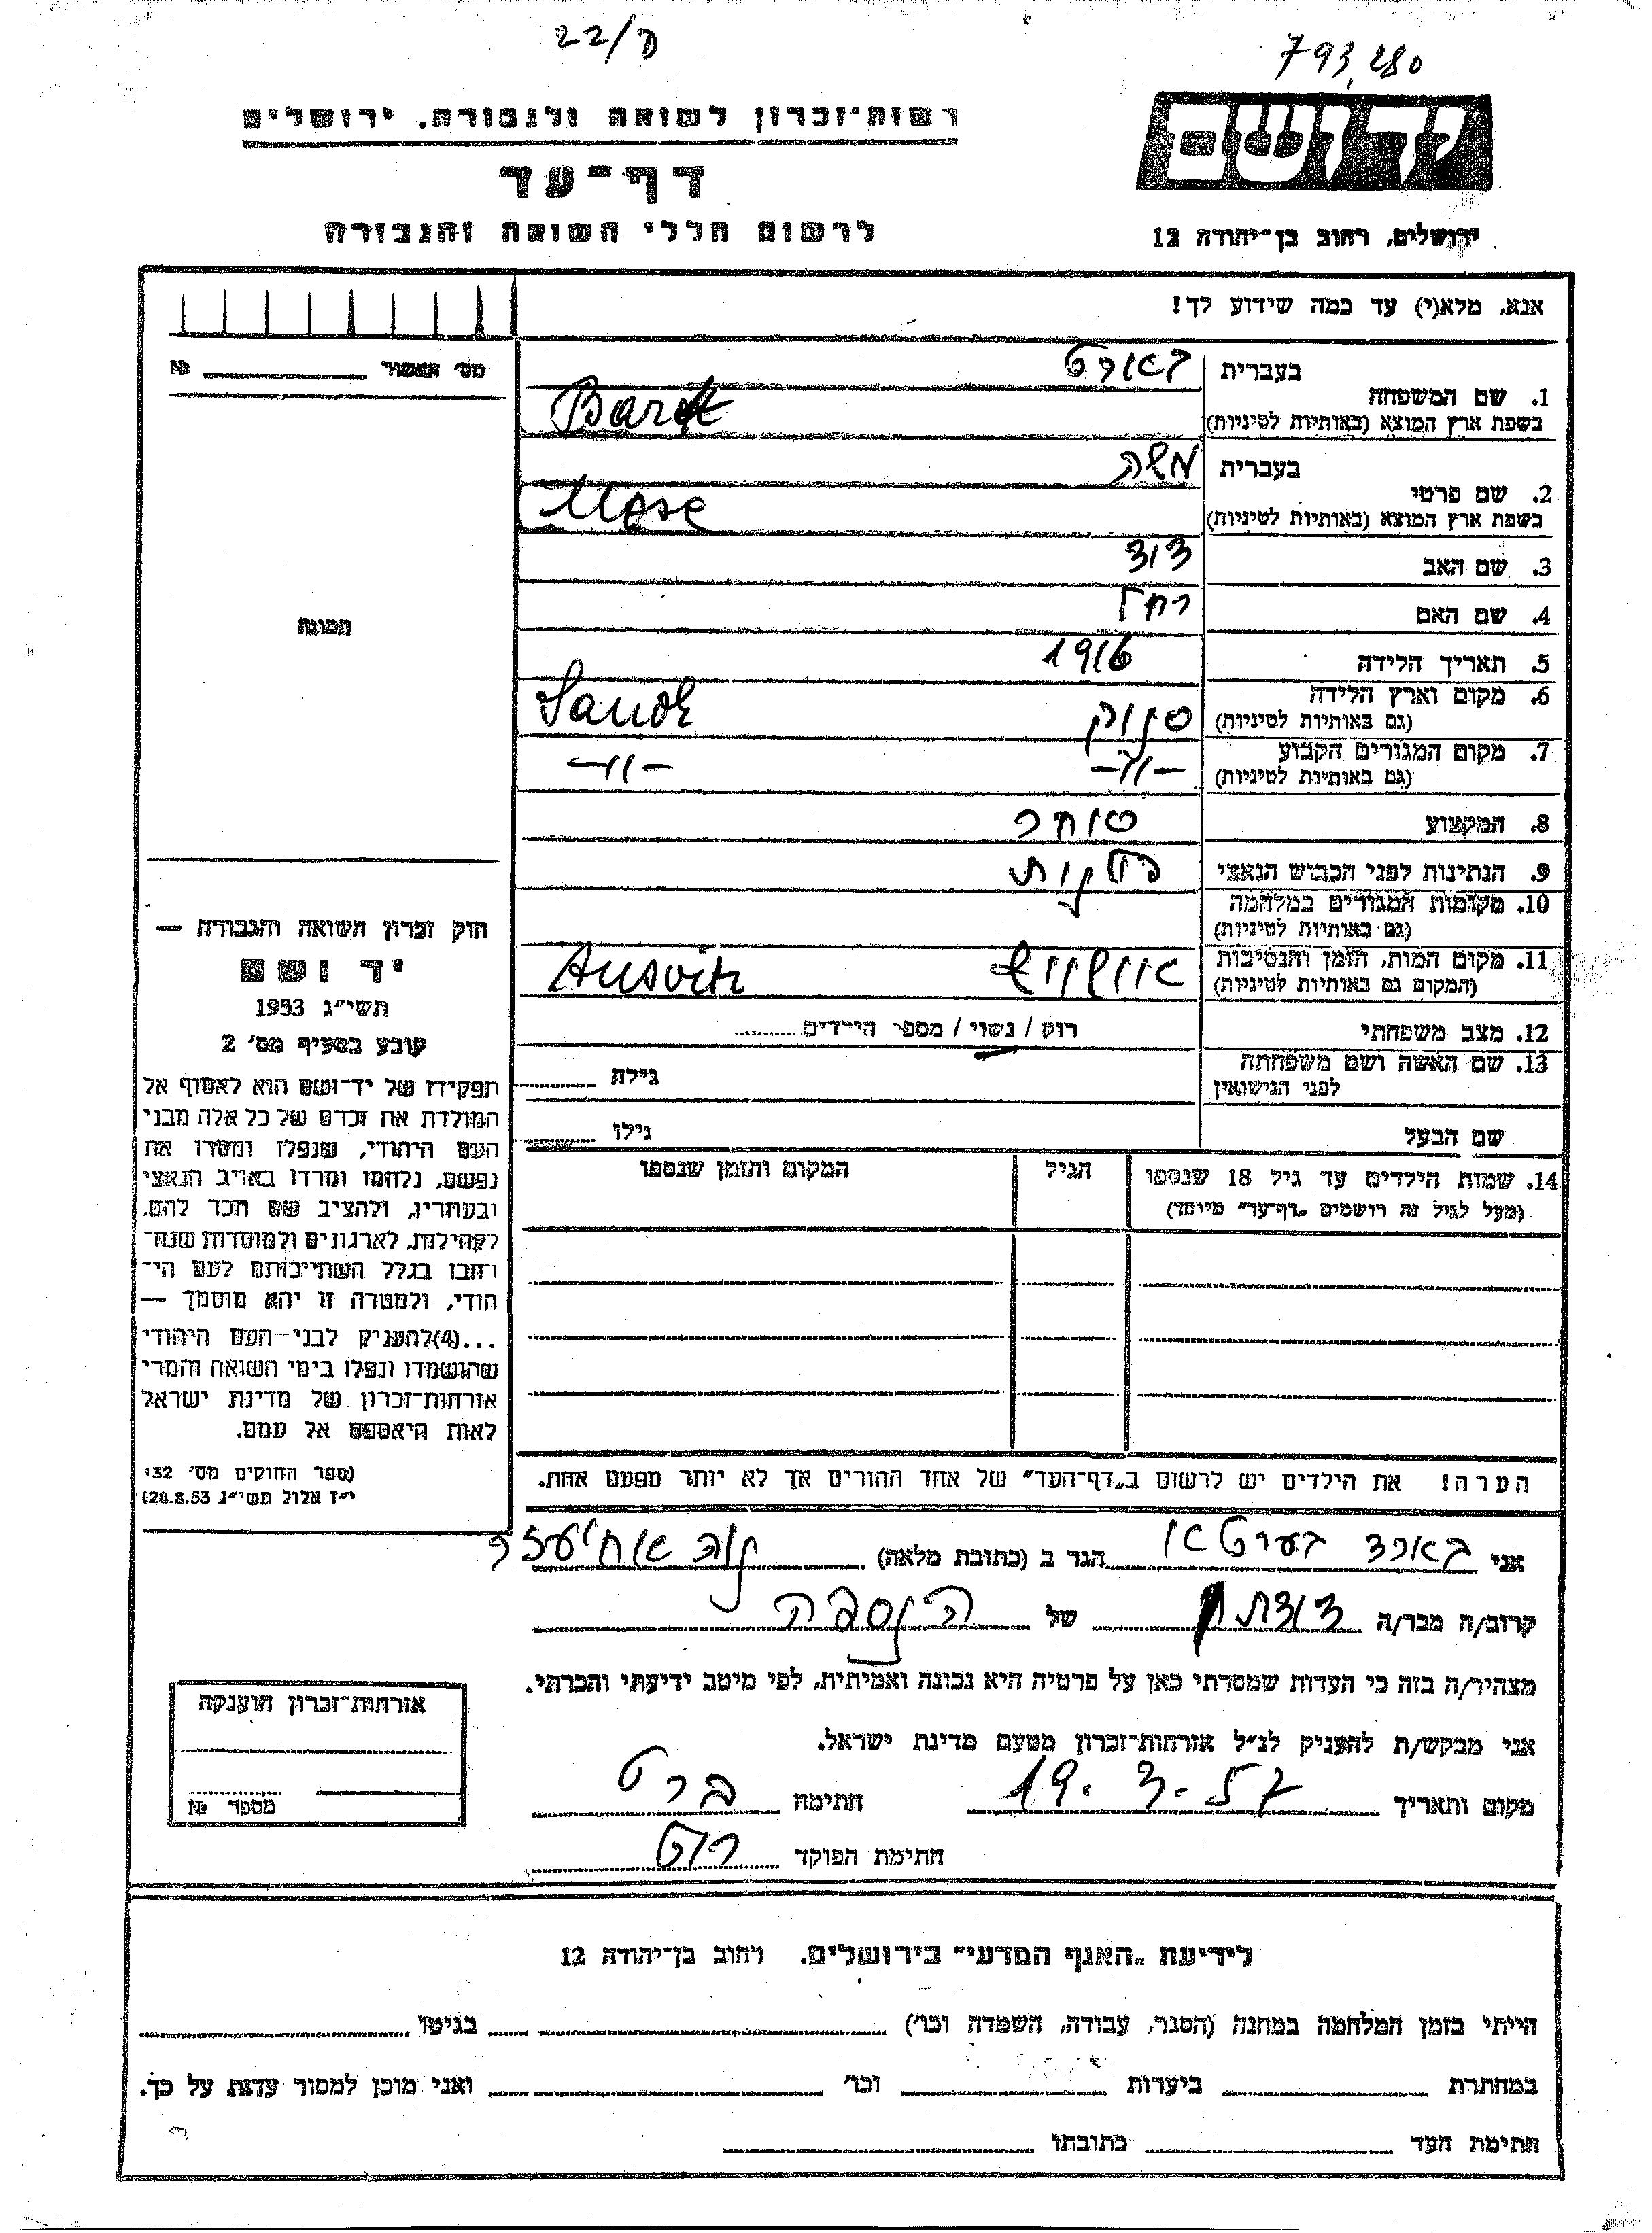 22/ח
793,280
רשות-זכרון לשואה ולגבורה. ירושלים
דף-עד
לרשום חללי השואה והגבורה
יד ושם
ירושלים, רחוב בן-יהודה 12
אנא, מלא(י) עד כמה שידוע לך!
מס' האשור № 
תמונה
1. שם המשפחה
בעברית בארט
בשפת ארץ המוצא (באותיות לטיניות) Bart
2. שם פרטי
בעברית משה
בשפת ארץ המוצא (באותיות לטיניות) Mose
3. שם האב דוד
4. שם האם רחל
5. תאריך הלידה 1916
6. מקום וארץ הלידה
(גם באותיות לטיניות) סנוק Sanok
7. מקום המגורים הקבוע
(גם באותיות לטיניות) -"- -"-
8. המקצוע סוחר
9. הנתינות לפני הכבוש הנאצי פולנית
10. מקומות המגורים במלחמה
(גם באותיות לטיניות)
11. מקום המות, הזמן והנסיבות
(המקום גם באותיות לטיניות) אושוויץ Ausvitz
12. מצב משפחתי רוק / נשוי / מספר הילדים
13. שם האשה ושם משפחתה
לפני הנישואין גילה
שם הבעל גילו
14. שמות הילדים עד גיל 18 שנספו הגיל המקום והזמן שנספו
(מעל לגיל זה רושמים "דף-עד" מיוחד)
הערה! את הילדים יש לרשום ב"דף-העד" של אחד ההורים אך לא יותר מפעם אחת.
חוק זכרון השואה והגבורה —
יד ושם
תשי"ג 1953
קובע בסעיף מס' 2
תפקידו של יד-ושם הוא לאסוף אל
המולדת את זכרם של כל אלה מבני
העם היהודי, שנפלו ומסרו את
נפשם, נלחמו ומרדו באויב הנאצי
ובעוזריו, ולהציב שם וזכר להם,
לקהילות, לארגונים ולמוסדות שנח-
רבו בגלל השתייכותם לעם הי-
הודי, ולמטרה זו יהא מוסמך —
...(4) להעניק לבני-העם היהודי
שהושמדו ונפלו בימי השואה והמרי
אזרחות-זכרון של מדינת ישראל
לאות היאספם אל עמם.
(ספר החוקים מס' 132
י"ז אלול תשי"ג 28.8.53)
אני בארד הגר ב (כתובת מלאה) נוה אחיעזר
קרוב/ה מכר/ה דודתו של הנספה
מצהיר/ה בזה כי העדות שמסרתי כאן על פרטיה היא נכונה ואמיתית, לפי מיטב ידיעתי והכרתי.
אני מבקש/ת להעניק לנ"ל אזרחות-זכרון מטעם מדינת ישראל.
מקום ותאריך 19.3.57 חתימה ברט
חתימת הפוקד
אזרחות-זכרון הוענקה
מספר №
לידיעת "האגף המדעי" בירושלים. רחוב בן-יהודה 12
הייתי בזמן המלחמה במחנה (הסגר, עבודה, השמדה וכו') בגיטו
במחתרת ביערות וכו' ואני מוכן למסור עדות על כך.
חתימת העד כתובתו